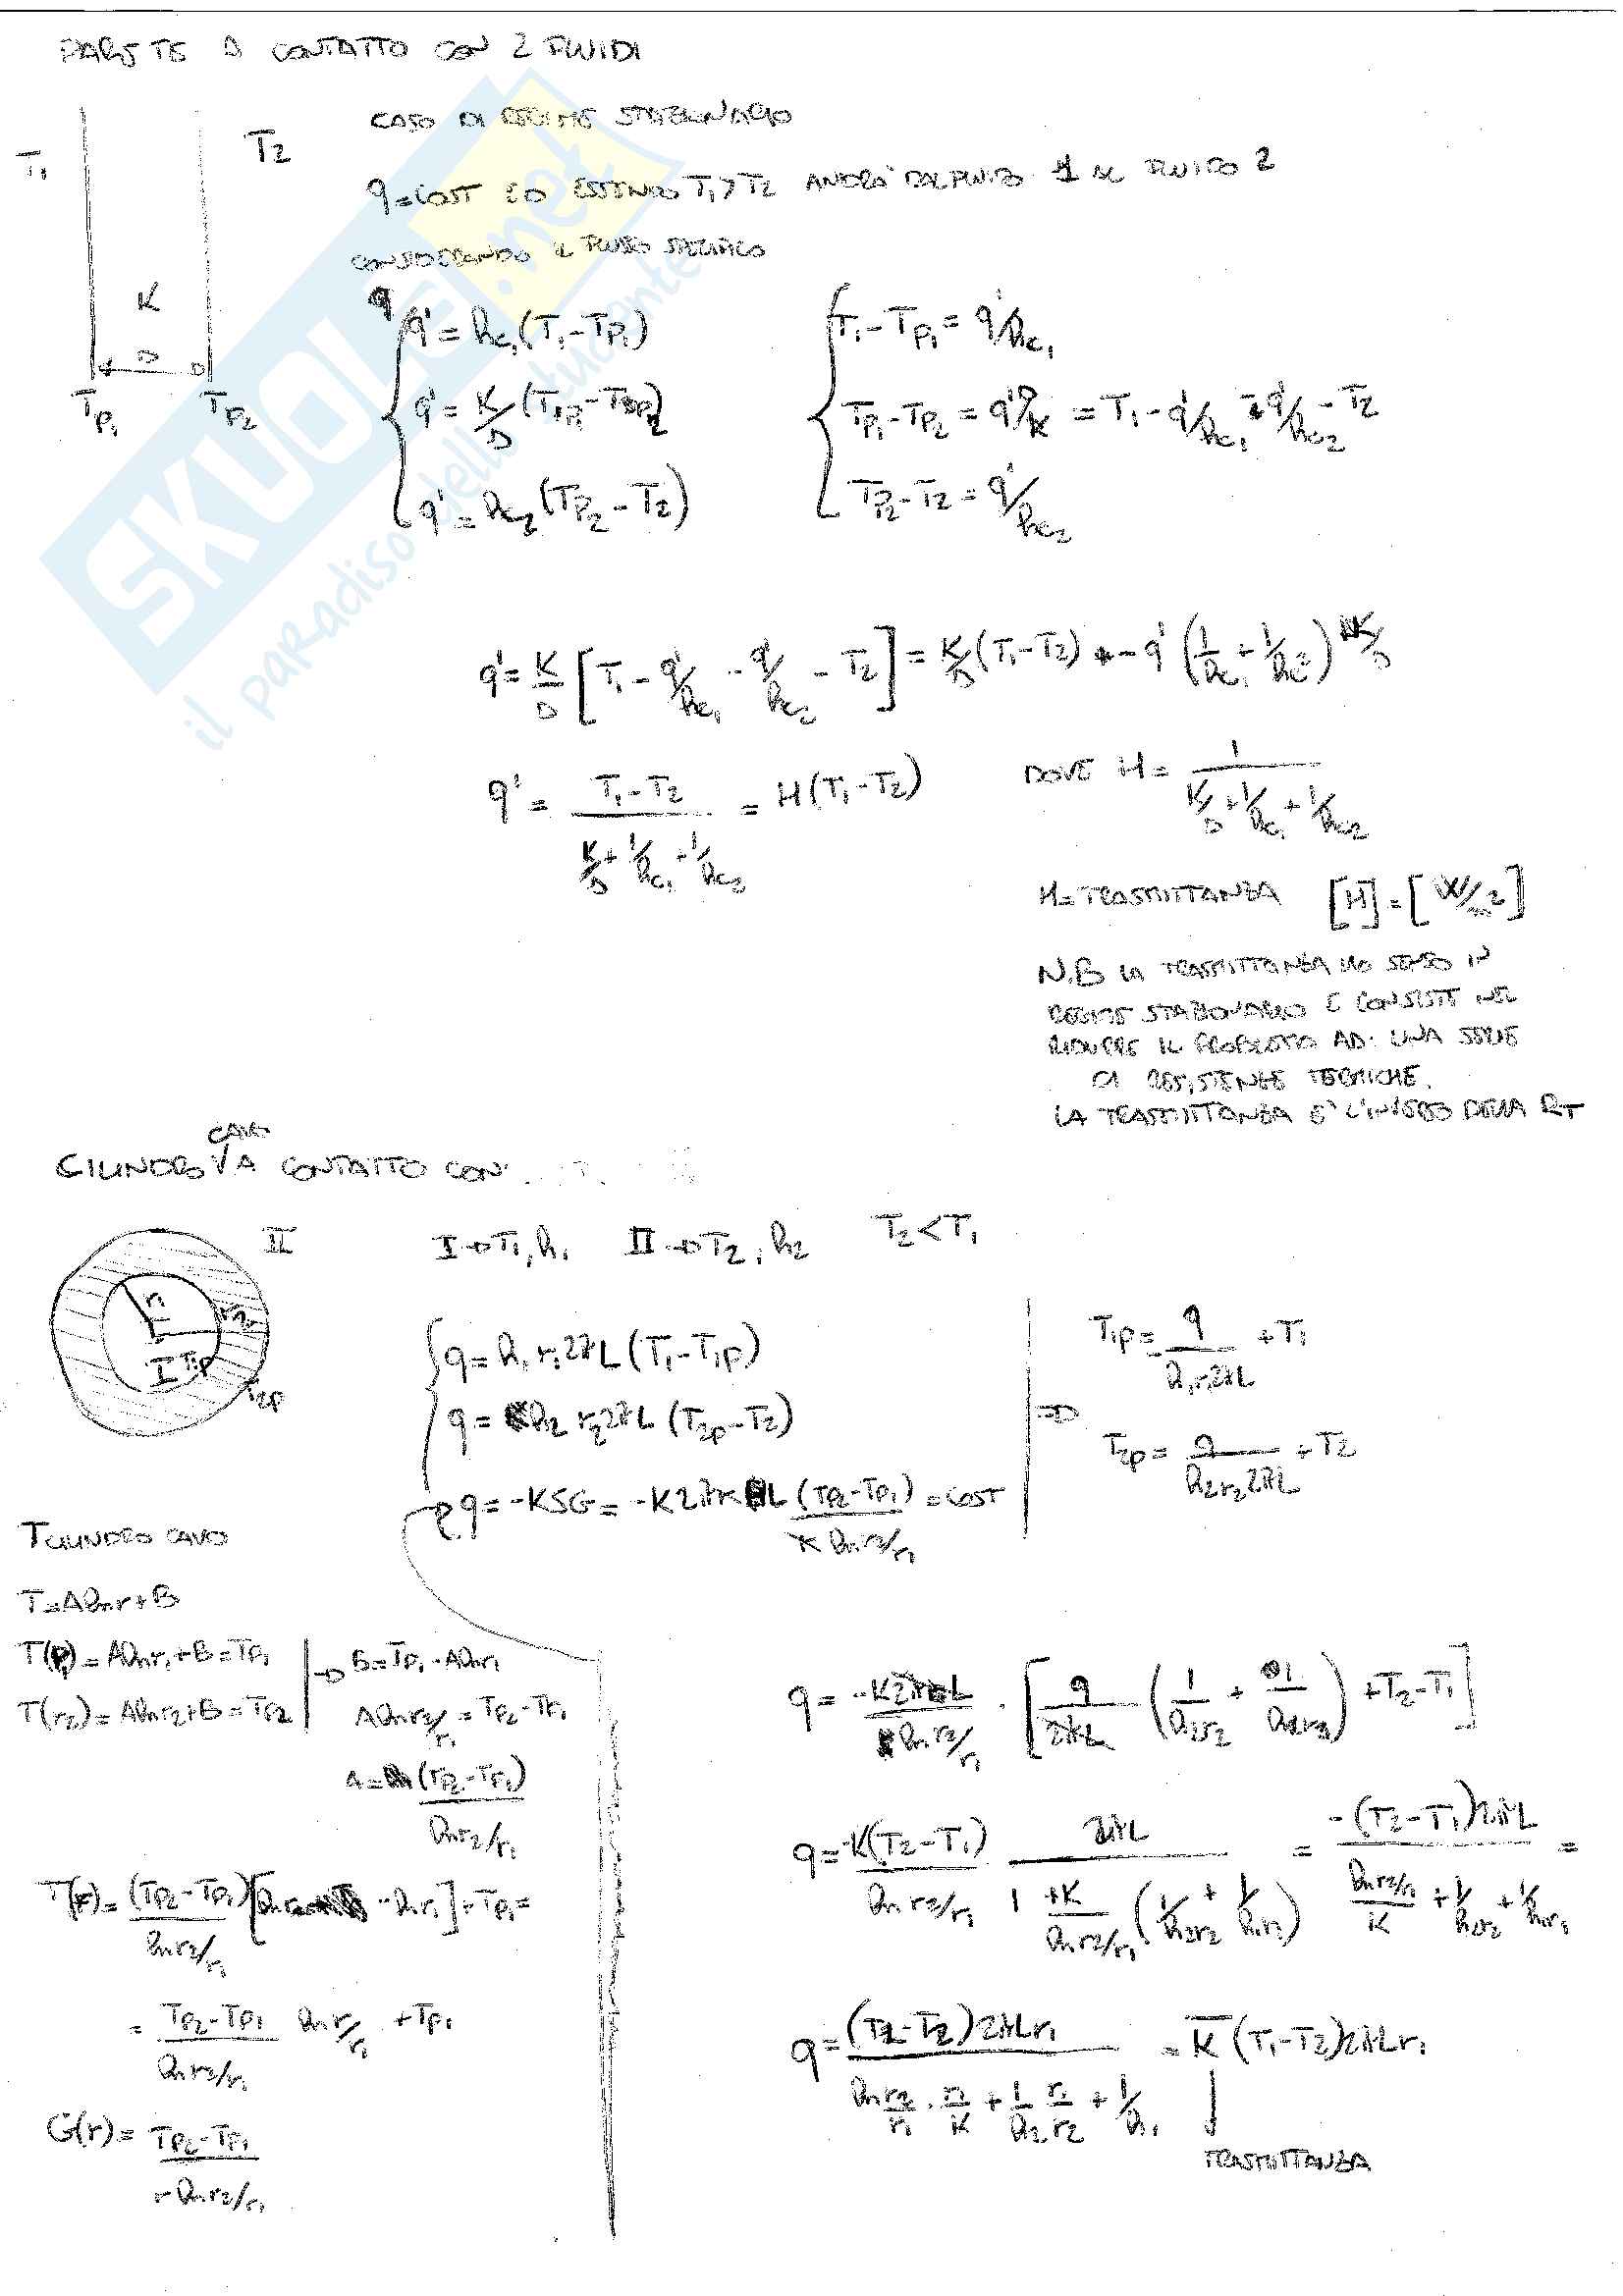 PARETE A CONTATTO CON 2 FLUIDI
CASO DI REGIME STAZIONARIO
T1 T2
q=COST ED ESSENDO T1>T2 ANDRÀ DAL FLUIDO 1 AL FLUIDO 2
CONSIDERANDO IL FLUSSO SPECIFICO
K
D
Tp1 Tp2
q' = hc1(T1-Tp1)
q' = K/D
q' = hc2(Tp2-T2)
T1-Tp1 = q'/hc1
Tp1-Tp2 = q'D/K = T1-q'/hc1 - q'/hc2 - T2
Tp2-T2 = q'/hc2
q' = K/D [T1 - q'/hc1 - q'/hc2 - T2] = K/D (T1-T2) - q' (1/hc1 + 1/hc2) K/D
q' = (T1-T2)/(K/D + 1/hc1 + 1/hc2) = H(T1-T2)
DOVE H = 1/(K/D + 1/hc1 + 1/hc2)
H=TRASMITTANZA [H]=[W/m2]
N.B LA TRASMITTANZA HA SENSO IN
REGIME STAZIONARIO E CONSISTE NEL
RIDURRE IL PROBLEMA AD UNA SERIE
DI RESISTENZE TERMICHE.
LA TRASMITTANZA E' L'INVERSO DELLA RT
CILINDRO CAVO A CONTATTO CON
II
I→T1,h1 II→T2,h2 T2<T1
r1 r2
I T1p
T2p
q = h1 r1 2πL (T1-T1p)
q = h2 r2 2πL (T2p-T2)
q = -KSG = -K2πr L (Tp2-Tp1)/(r ln r2/r1) = COST
⇒
T1p = q/(h1r12πL) + T1
T2p = q/(h2r22πL) + T2
T CILINDRO CAVO
T=A ln r+B
T(r1) = A ln r1+B = Tp1
T(r2) = A ln r2+B = Tp2
→ B=Tp1-A ln r1
A ln r2/r1 = Tp2-Tp1
A = (Tp2-Tp1)/(ln r2/r1)
T(r) = (Tp2-Tp1)/(ln r2/r1) [ln - ln r1] + Tp1 =
= (Tp2-Tp1)/(ln r2/r1) ln r/r1 + Tp1
G(r) = (Tp2-Tp1)/(r ln r2/r1)
q = -K2πL/(ln r2/r1) · [q/(2πL) (1/(h2r2) + 1/) + T2-T1]
q = -K(T2-T1)/(ln r2/r1) 2πL/(1 + K/(ln r2/r1) (1/h2r2 + 1/h1r1)) = -(T2-T1)2πL/((ln r2/r1)/K + 1/h2r2 + 1/h1r1) =
q = 2πLr1/(ln r2/r1 · r1/K + 1/h2 r1/r2 + 1/h1) = K(T1-T2)2πLr1
TRASMITTANZA
SKUOLA.net
il paradiso dello studente